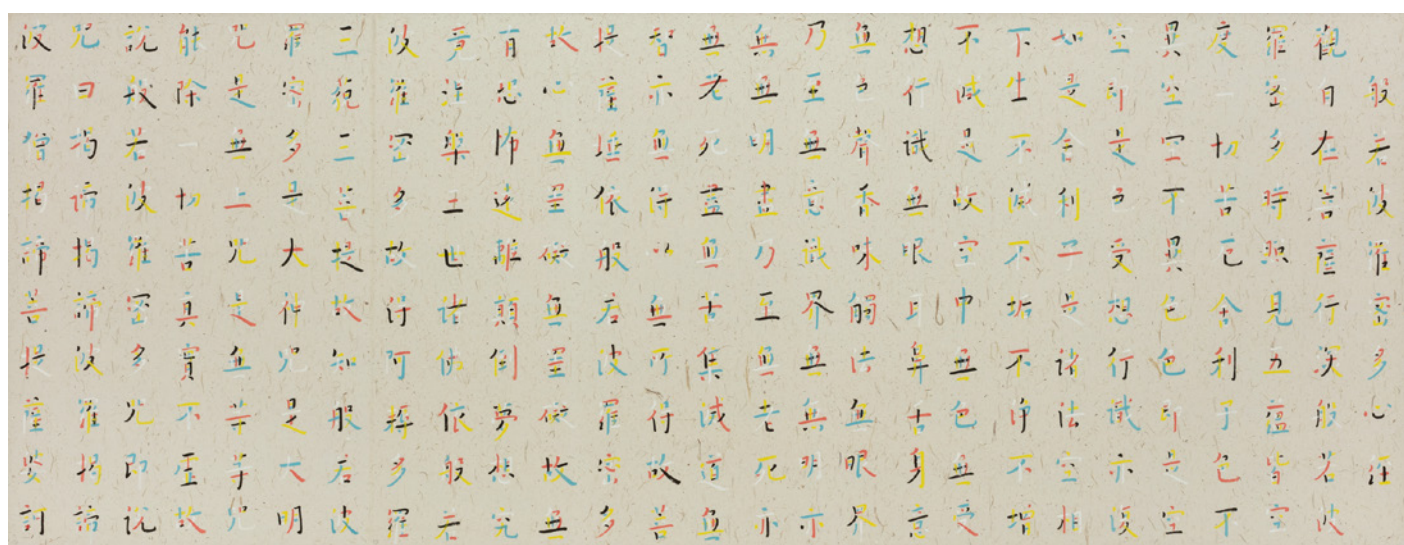 般若波羅密多心經
觀自在菩薩行深般若波
羅密多時照見五蘊皆空
度一切苦厄舍利子色不
異空空不異色色即是空
空即是色受想行識亦復
如是舍利子是諸法空相
不生不滅不垢不淨不增
不減是故空中無色無受
想行識無眼耳鼻舌身意
無色聲香味觸法無眼界
乃至無意識界無無明亦
無無明盡乃至無老死亦
無老死盡無苦集滅道無
智亦無得以無所得故菩
提薩埵依般若波羅密多
故心無罣礙無罣礙故無
有恐怖遠離顛倒夢想究
竟涅槃三世諸佛依般若
波羅密多故得阿耨多羅
三藐三菩提故知般若波
羅密多是大神咒是大明
咒是無上咒是無等等咒
能除一切苦真實不虛故
說般若波羅密多咒即說
咒曰揭諦揭諦波羅揭諦
波羅僧揭諦菩提薩婆訶